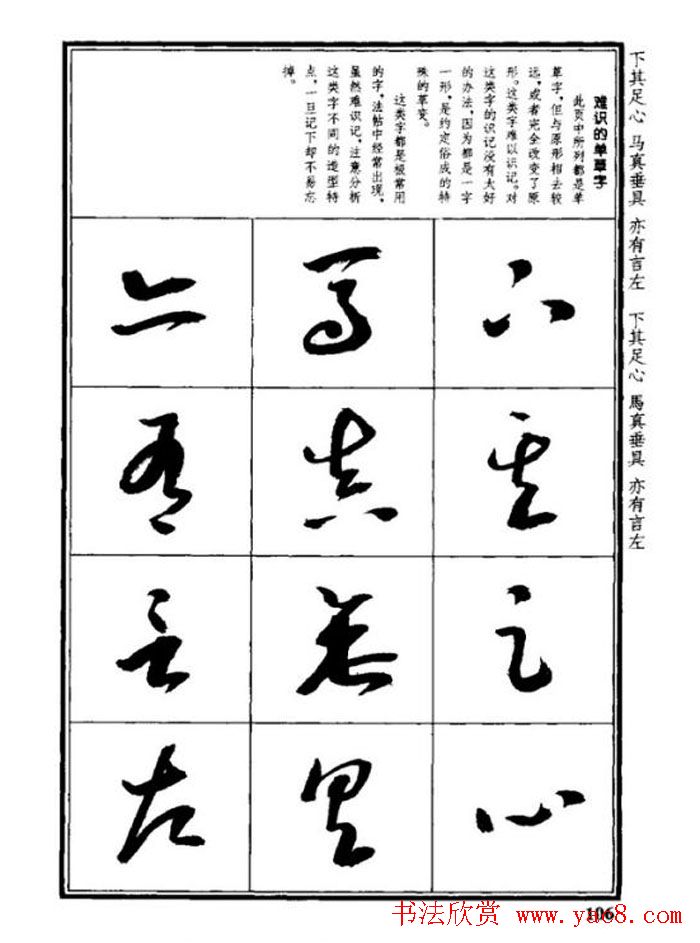 下其足心 马真垂具 亦有言左 下其足心 馬真垂具 亦有言左
难识的单草字
此页中所列都是单
草字,但与原形相去较
远,或者完全改变了原
形。这类字难以识记。对
这类字的识记没有太好
的办法,因为都是一字
一形,是约定俗成的特
殊的草变。
这类字都是极常用
的字,法帖中经常出现,
虽然难识记,注意分析
这类字不同的造型特
点,一旦记下却不易忘
掉。
下其足心
馬真垂具
亦有言左
106
书法欣赏 www.yac8.com